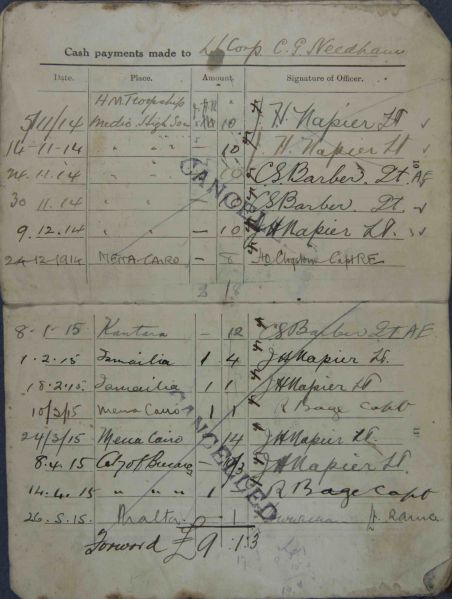 Cash payments made to L/Corp C. G Needham
Date. Place. Amount Signature of Officer.
H.M. Troopship
5/11/14 Media High Sea 10 H. Napier Lt
14-11-14 " " 10 H. Napier Lt
24.11.14 " " 10 C.S. Barber. Lt. AE
30 11.14 C.S. Barber Lt
9.12.14 " " — 10 J.H. Napier Lt.
24-12-1914 MENA CAIRO — 8 Capt RE
2 18
CANCELLED
8-1-15 Kantara — 12 C.S. Barber Lt AE
1.2.15 Ismailia 1 4 J.H. Napier Lt.
18.2.15 Ismailia 1 1 J.H. Napier Lt
10/3/15 Mena Cairo 1 1 R Bage Capt
24/3/15 Mena Cairo 14 J.H. Napier Lt.
8.4.15 — J.H. Napier Lt.
14.4.15 " " " 1 R Bage Capt
26.5.15 Malta — 1
Forward £ 9 1.3
CANCELLED